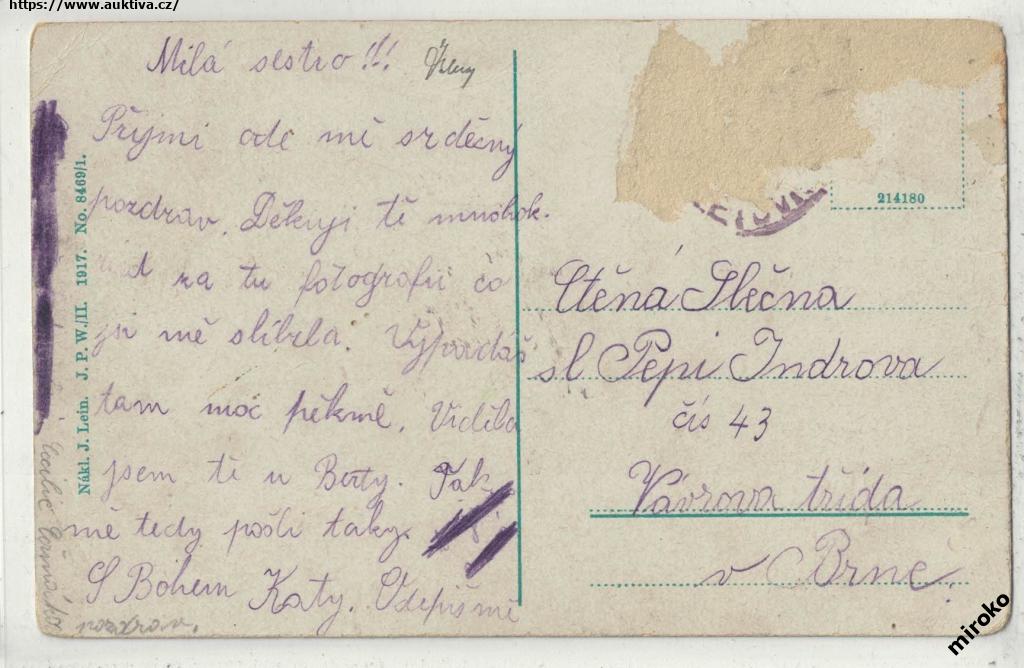 https://www.auktiva.cz/
Milá sestro!!!
Přijmi ode mě srdečný
pozdrav. Děkuji tě mnohok.
za tu fotografii čo
jsi mě slíbila. Vypadáš
tam moc pěkmě. Viděla
jsem tě u Berty. Tak
mě tedy pošli taky.
S Bohem Katy. Odepiš mě
pozdrav.
Nákl. J. Lein. J. P. W./II. 1917. No. 8469/1.
214180
Ctěná Slečna
sl Pepi Indrova
čís 43
Vávrova třída
v Brně.
miroko